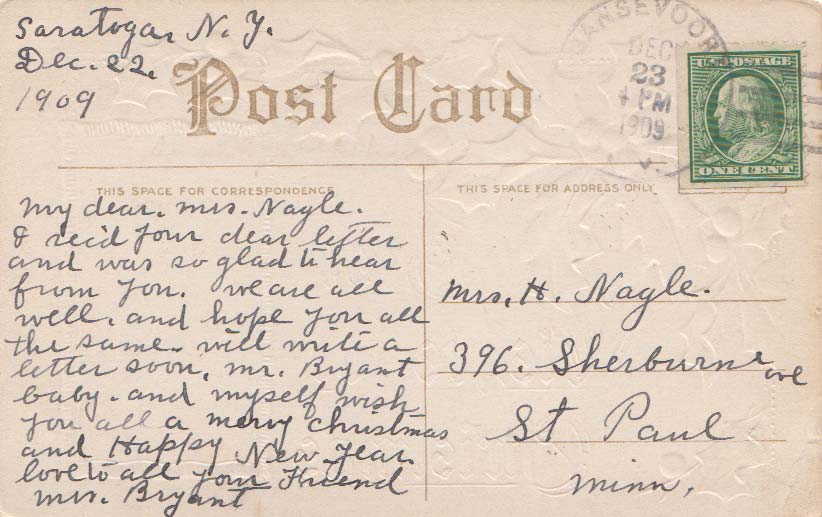 Saratoga, N.Y.
Dec. 22.
1909
Post Card
DEC
23
4 PM
1909
U.S. POSTAGE
ONE CENT
THIS SPACE FOR CORRESPONDENCE
THIS SPACE FOR ADDRESS ONLY
My dear. Mrs. Nagle.
I rec'd your dear letter
and was so glad to hear
from you. we are all
well. and hope you all
the same. will write a
letter soon, Mr. Bryant
baby. and myself wish
you all a merry Christmas
and Happy New Year.
love to all your Friend
Mrs. Bryant
Mrs. H. Nagle.
396. Sherburne ave
St Paul
Minn,